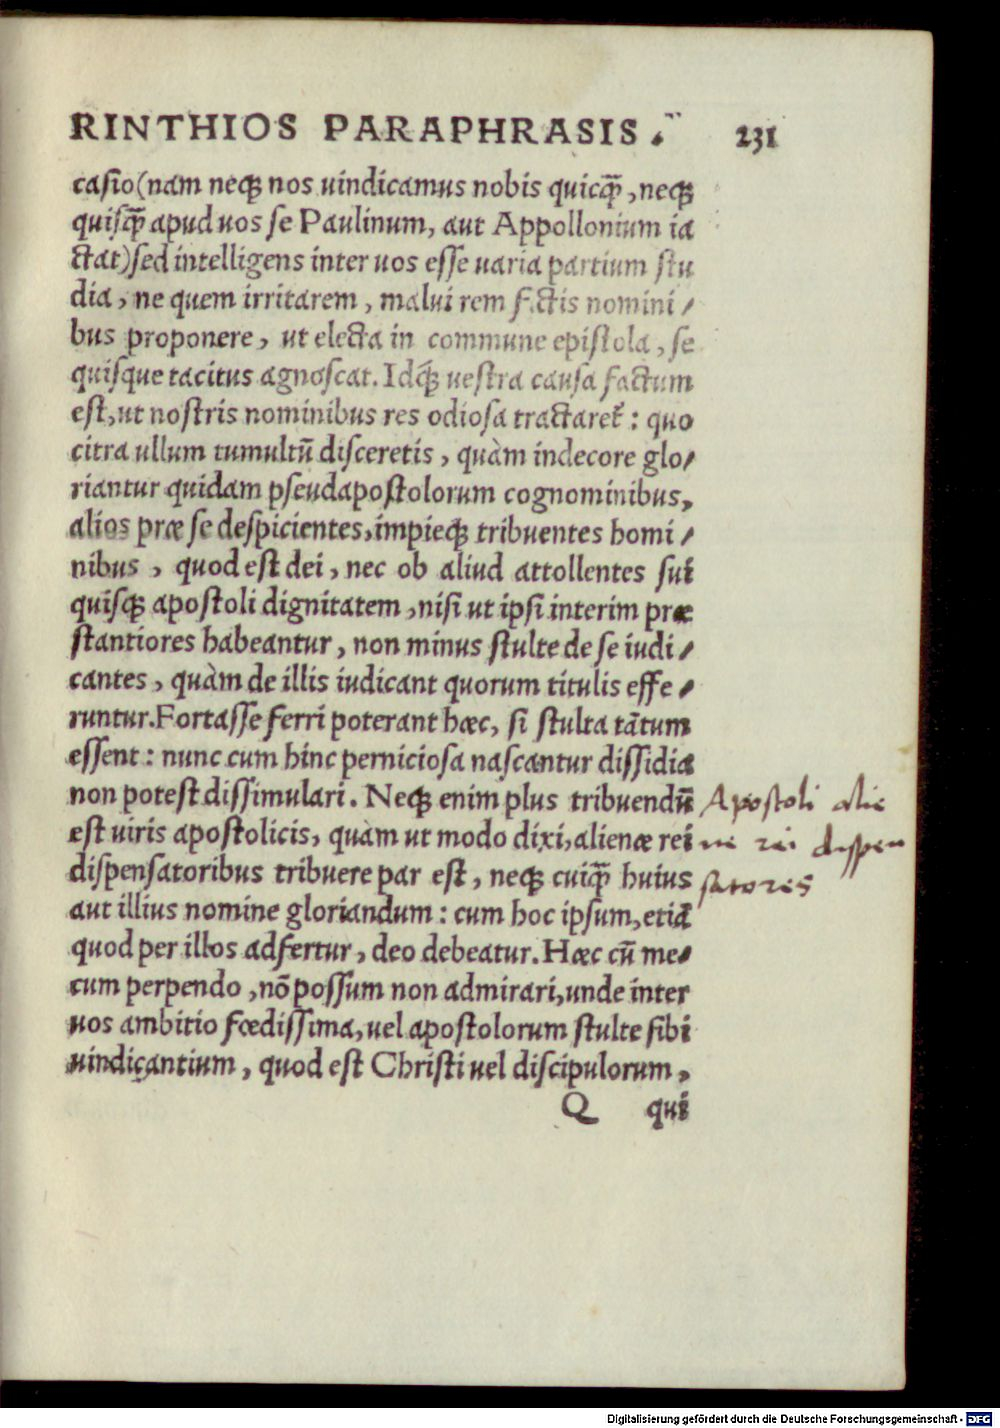 RINTHIOS PARAPHRASIS. 231
casio(nam neqꝫ nos uindicamus nobis quicq̃, neqꝫ
quisq̃ apud uos se Paulinum, aut Appollonium ia
ctat)sed intelligens inter uos esse uaria partium stu
dia, ne quem irritarem, malui rem fictis nomini/
bus proponere, ut electa in commune epistola, se
quisque tacitus agnoscat. Idqꝫ uestra causa factum
est, ut nostris nominibus res odiosa tractaret̃: quo
citra ullum tumultũ disceretis, quàm indecore glo/
riantur quidam pseudapostolorum cognominibus,
alios præ se despicientes, impieqꝫ tribuentes homi/
nibus, quod est dei, nec ob aliud attollentes sui
quisqꝫ apostoli dignitatem, nisi ut ipsi interim præ
stantiores habeantur, non minus stulte de se iudi/
cantes, quàm de illis iudicant quorum titulis effe/
runtur. Fortasse ferri poterant hæc, si stulta tãtum
essent: nunc cum hinc perniciosa nascantur dissidia
non potest dissimulari. Neqꝫ enim plus tribuendũ
est uiris apostolicis, quàm ut modo dixi, alienæ rei
dispensatoribus tribuere par est, neqꝫ cuiq̃ huius
aut illius nomine gloriandum: cum hoc ipsum, etiã
quod per illos adfertur, deo debeatur. Hæc cũ me/
cum perpendo, nõ possum non admirari, unde inter
uos ambitio fœdissima, uel apostolorum stulte sibi
uindicantium, quod est Christi uel discipulorum,
Q qui
Apostoli alie
ne rei dispen
satores
Digitalisierung gefördert durch die Deutsche Forschungsgemeinschaft - DFG